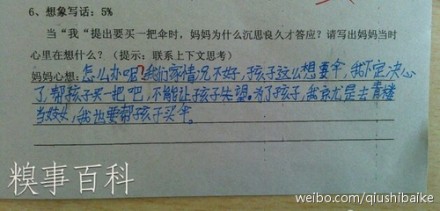 6、想象写话：5%
当“我“提出要买一把伞时，妈妈为什么沉思良久才答应？请写出妈妈当时
心里在想什么？（提示：联系上下文思考）
妈妈心想：怎么办呢？我们家情况不好，孩子这么想要伞，我下定决心
了，帮孩子买一把吧，不能让孩子失望。为了孩子，我就是去青楼
当妓女，我也要帮孩子买伞。
糗事百科
weibo.com/qiushibaike